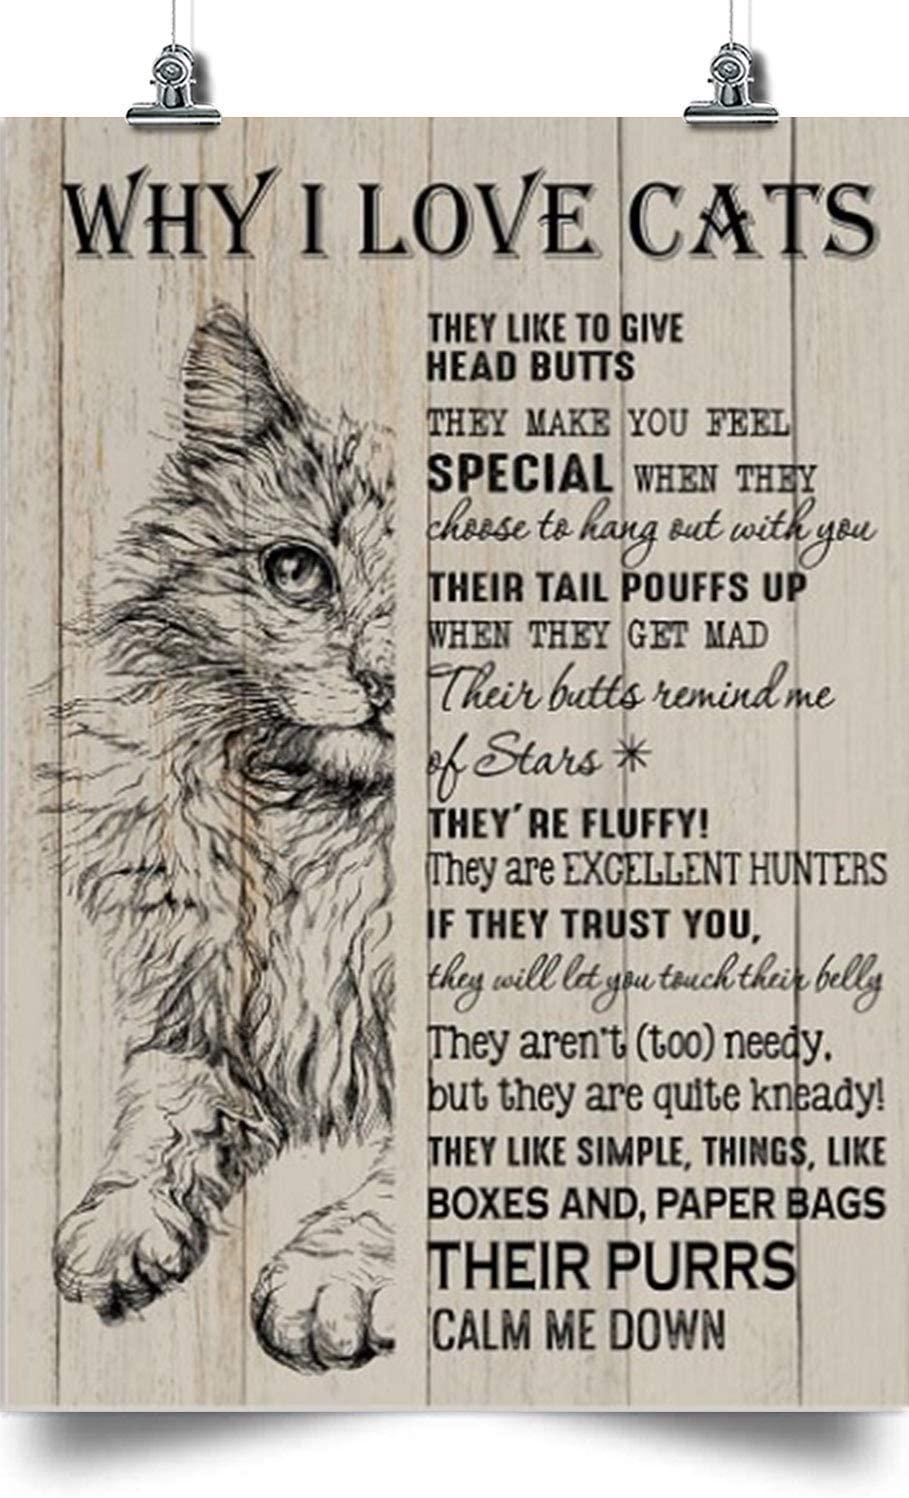 WHY I LOVE CATS
THEY LIKE TO GIVE
HEAD BUTTS
THEY MAKE YOU FEEL
SPECIAL WHEN THEY
choose to hang out with you
THEIR TAIL POUFFS UP
WHEN THEY GET MAD
Their butts remind me
of Stars *
THEY'RE FLUFFY!
They are EXCELLENT HUNTERS
IF THEY TRUST YOU,
they will let you touch their belly
They aren't (too) needy,
but they are quite kneady!
THEY LIKE SIMPLE, THINGS, LIKE
BOXES AND, PAPER BAGS
THEIR PURRS
CALM ME DOWN